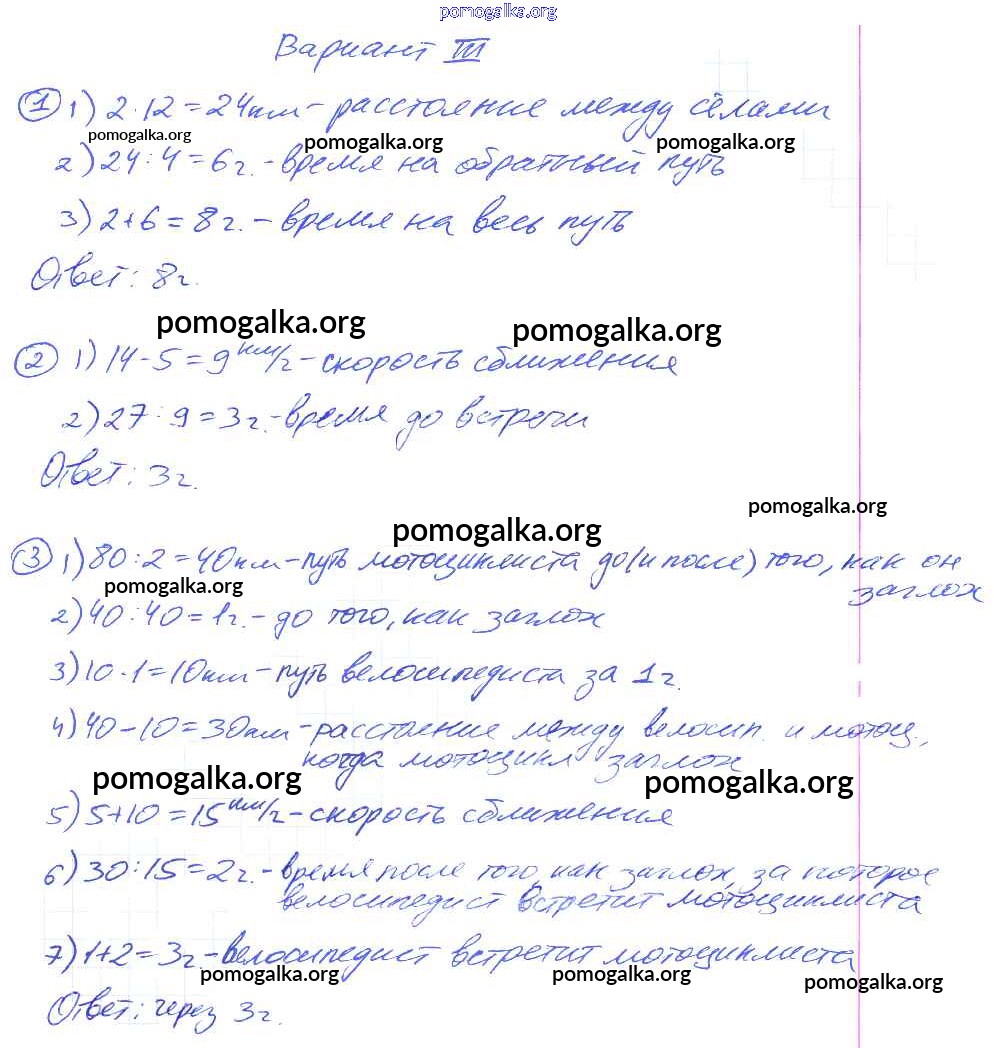 pomogalka.org
Вариант III
1 1) 2·12=24км-расстояние между сёлами
pomogalka.org pomogalka.org pomogalka.org
2) 24:4=6г.-время на обратный путь
3) 2+6=8г.-время на весь путь
Ответ: 8г.
pomogalka.org pomogalka.org
2 1) 14-5=9км/г-скорость сближения
2) 27:9=3г.-время до встречи
Ответ: 3г.
pomogalka.org
pomogalka.org
3 1) 80:2=40км-путь мотоциклиста до(и после) того, как он
заглох
pomogalka.org
2) 40:40=1г.-до того, как заглох
3) 10·1=10км-путь велосипедиста за 1г.
4) 40-10=30км-расстояние между велосип. и мотоц.,
когда мотоцикл заглох
pomogalka.org pomogalka.org
5) 5+10=15км/г-скорость сближения
6) 30:15=2г.-время после того, как заглох, за которое
велосипедист встретит мотоциклиста
7) 1+2=3г-велосипедист встретит мотоциклиста
pomogalka.org pomogalka.org pomogalka.org
Ответ: через 3г.